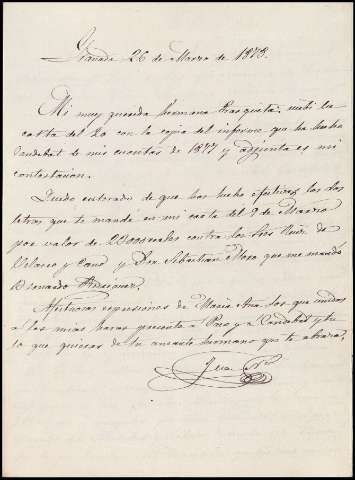 Granada 26 de Marzo de 1878.
Mi muy querida hermana Frasquita: recibí tu
carta del 20 con la copia del informe que ha hecho
Candabat de mis cuentas de 1877 y adjunta es mi
contestacion.
Quedo enterado de que has hecho efectivas las dos
letras que te mandé en mi carta del 9 de Marzo
por valor de reales contra los Sres Ruiz de
Velasco y Cano y Don Sebastian Mora que me mandó
Bernardo
Afectuosas espresiones de Maria Ana las que unidas
a las mias haras presente a Paco y a Candabat y tu
lo que quieras de tu amante hermano que te abraza.
Juan